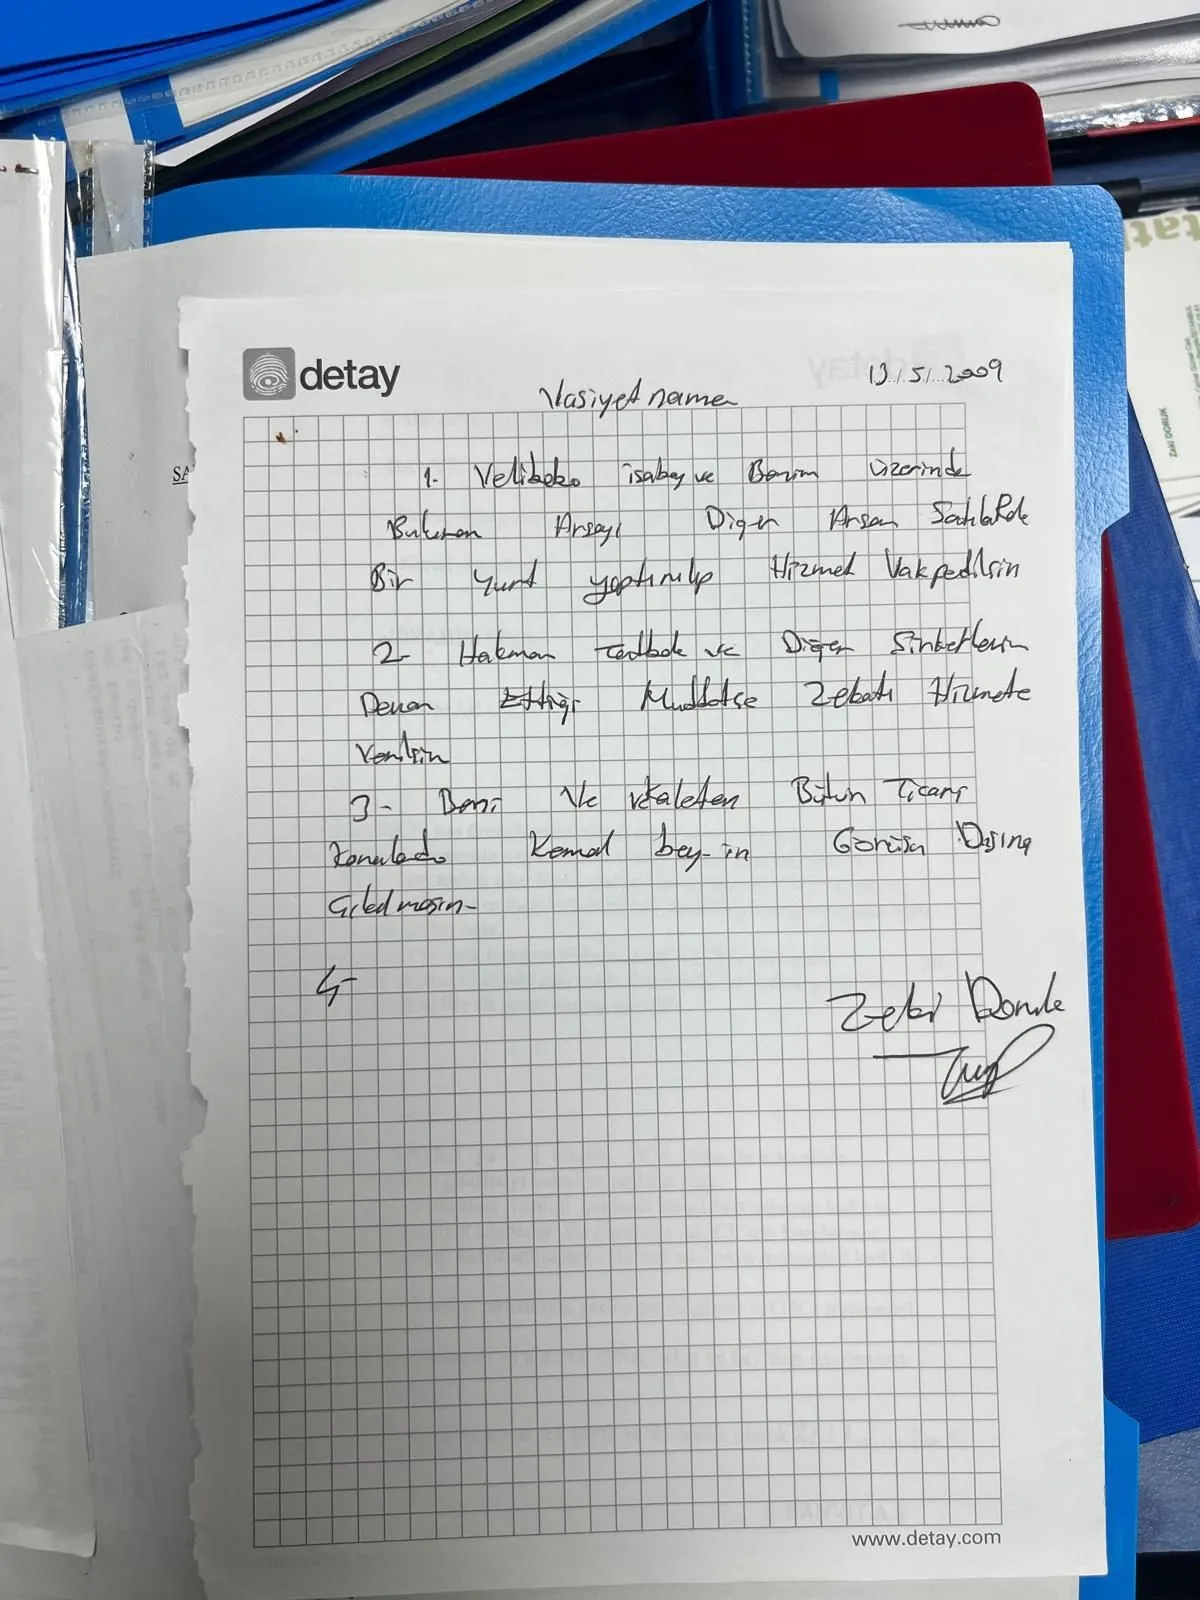 detay
13/5/2009
Vasiyet name
1- Velibaba isabey ve Benim üzerinde
Bulunan Arsayı Diğer Arsan Satılarak
Bir Yurt yaptırılıp Hizmet Vakfedilsin
2- ve Diğer Şirketlerin
Devam Ettiği Muddetçe Zekatı Hizmete
Verilsin
3- Beni Ve vekaleten Bütün Ticari
Konularda Kemal bey-in Görüşü Dışına
Çıkılmasın-
4-
Zeki Doruk
www.detay.com
Zeki DORUK
SA